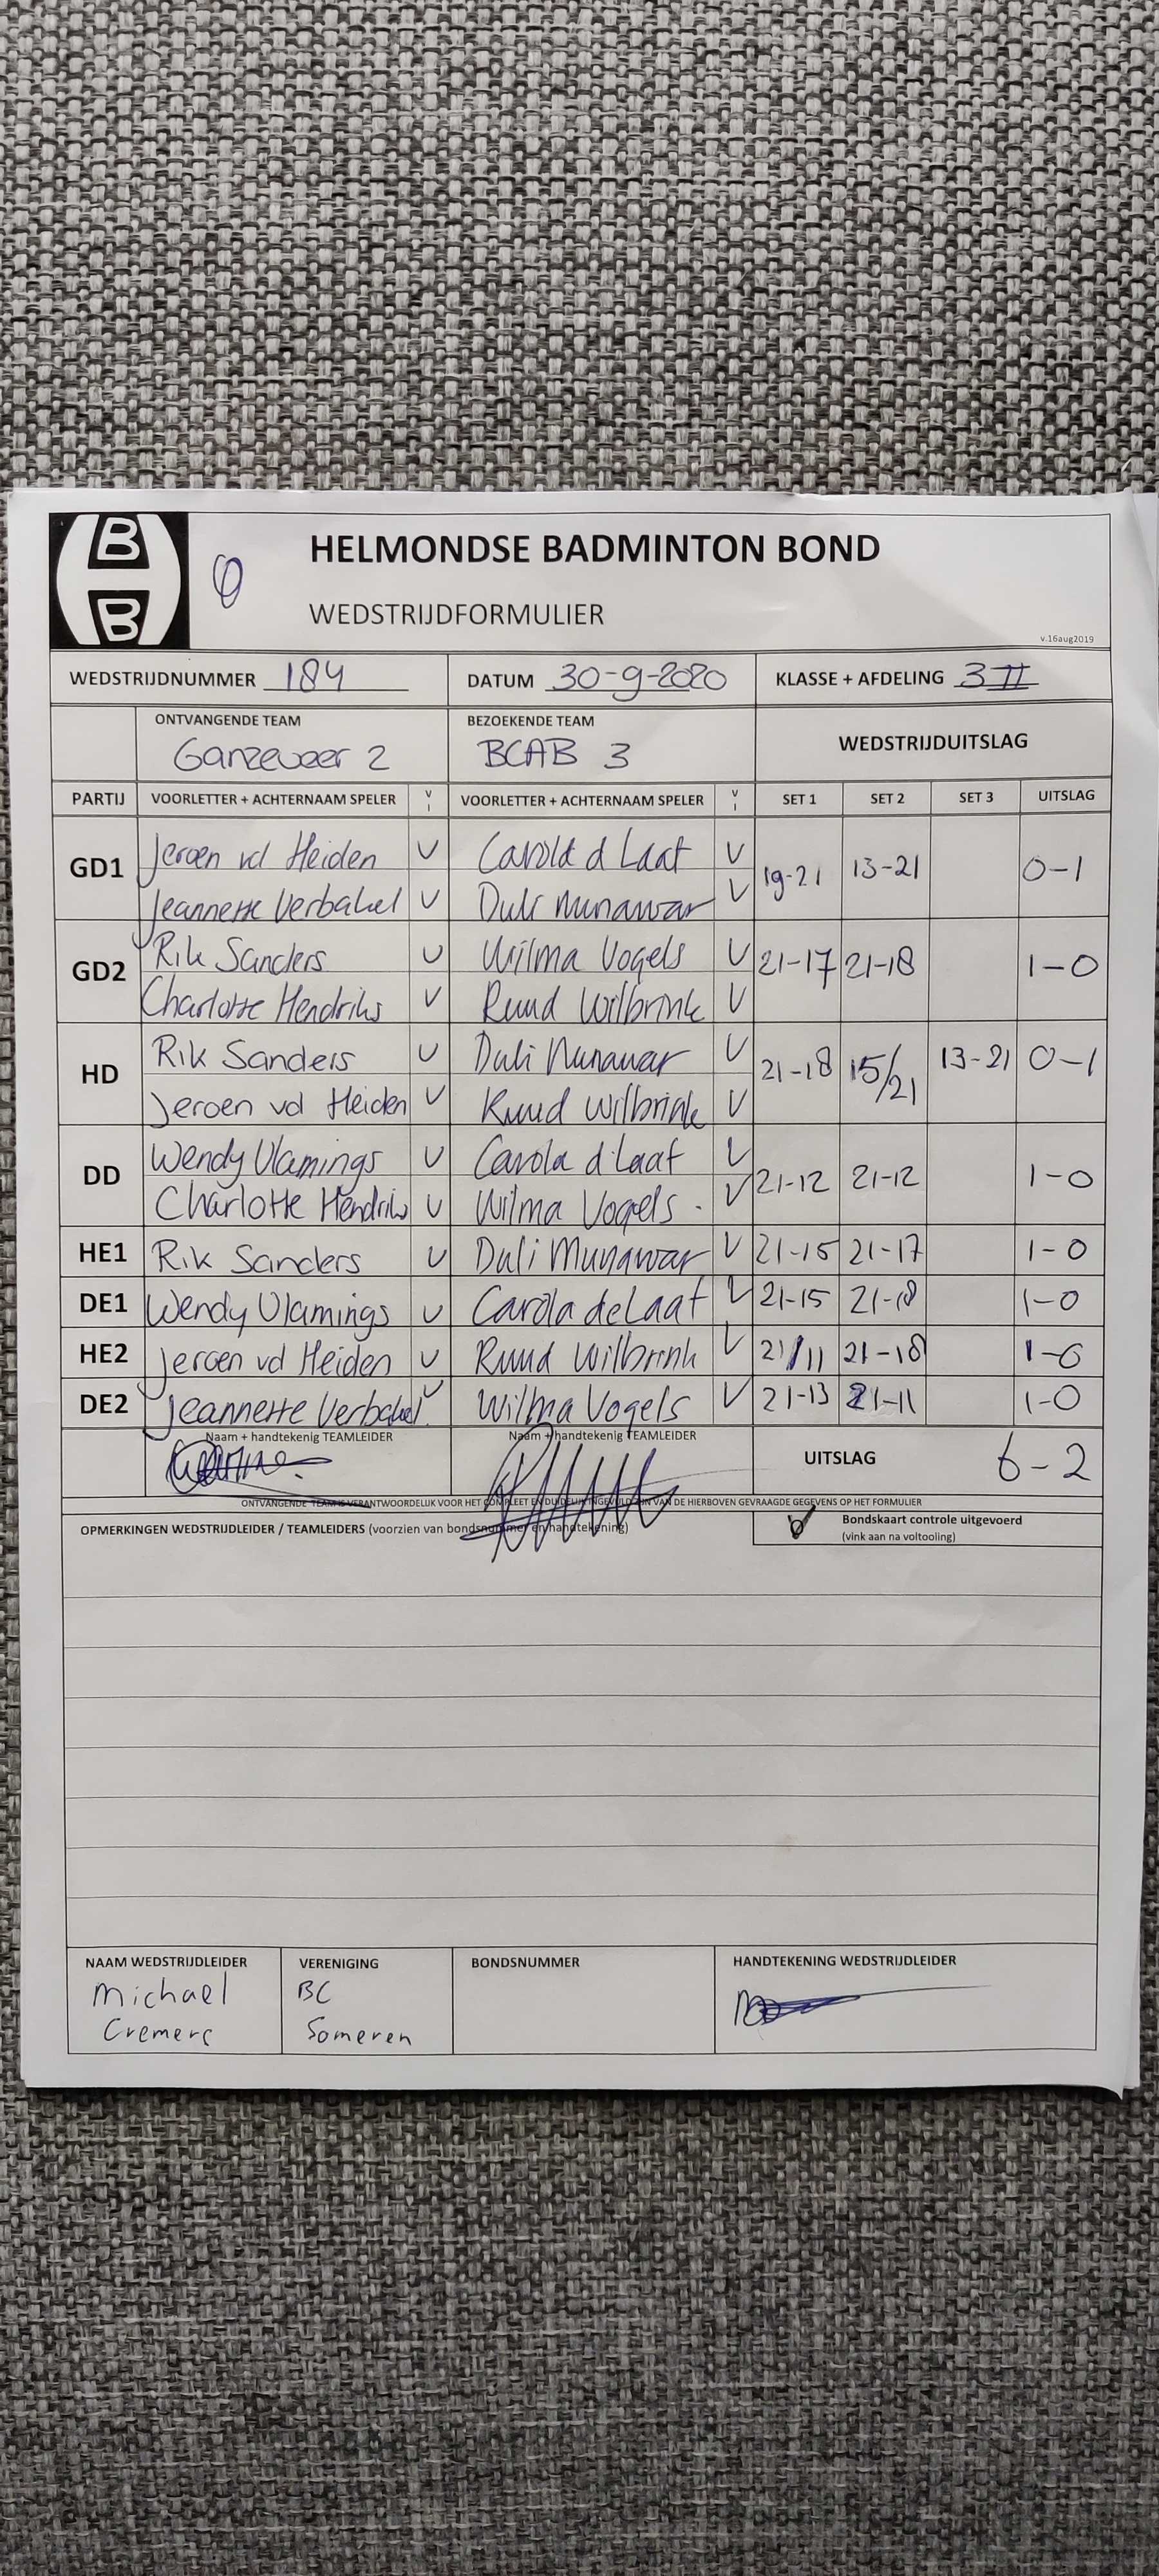 B
B
HELMONDSE BADMINTON BOND
WEDSTRIJDFORMULIER
v.16aug2019
WEDSTRIJDNUMMER 184 DATUM 30-9-2020 KLASSE + AFDELING 3 II
ONTVANGENDE TEAM BEZOEKENDE TEAM WEDSTRIJDUITSLAG
Ganzeveer 2 BCAB 3
PARTIJ VOORLETTER + ACHTERNAAM SPELER V VOORLETTER + ACHTERNAAM SPELER V SET 1 SET 2 SET 3 UITSLAG
GD1 Jeroen vd Heiden V Carola d Laat V 19-21 13-21 0-1
Jeannette Verbakel V Duli Munawar V
GD2 Rik Sanders V Wilma Vogels V 21-17 21-18 1-0
Charlotte Hendriks V Ruud Wilbrink V
HD Rik Sanders V Duli Munawar V 21-18 15/21 13-21 0-1
Jeroen vd Heiden V Ruud Wilbrink V
DD Wendy Vlamings V Carola d Laat V 21-12 21-12 1-0
Charlotte Hendriks V Wilma Vogels. V
HE1 Rik Sanders V Duli Munawar V 21-15 21-17 1-0
DE1 Wendy Vlamings V Carola de Laat V 21-15 21-18 1-0
HE2 Jeroen vd Heiden V Ruud Wilbrink V 21/11 21-18 1-0
DE2 Jeannette Verbakel V Wilma Vogels V 21-13 21-11 1-0
Naam + handtekenig TEAMLEIDER Naam + handtekenig TEAMLEIDER UITSLAG 6-2
ONTVANGENDE TEAM IS VERANTWOORDELIJK VOOR HET COMPLEET EN DUIDELIJK INGEVULD ZIJN VAN DE HIERBOVEN GEVRAAGDE GEGEVENS OP HET FORMULIER
OPMERKINGEN WEDSTRIJDLEIDER / TEAMLEIDERS (voorzien van bondsnummer en handtekening) Bondskaart controle uitgevoerd
(vink aan na voltooling)
NAAM WEDSTRIJDLEIDER VERENIGING BONDSNUMMER HANDTEKENING WEDSTRIJDLEIDER
Michael BC
Cremers Someren